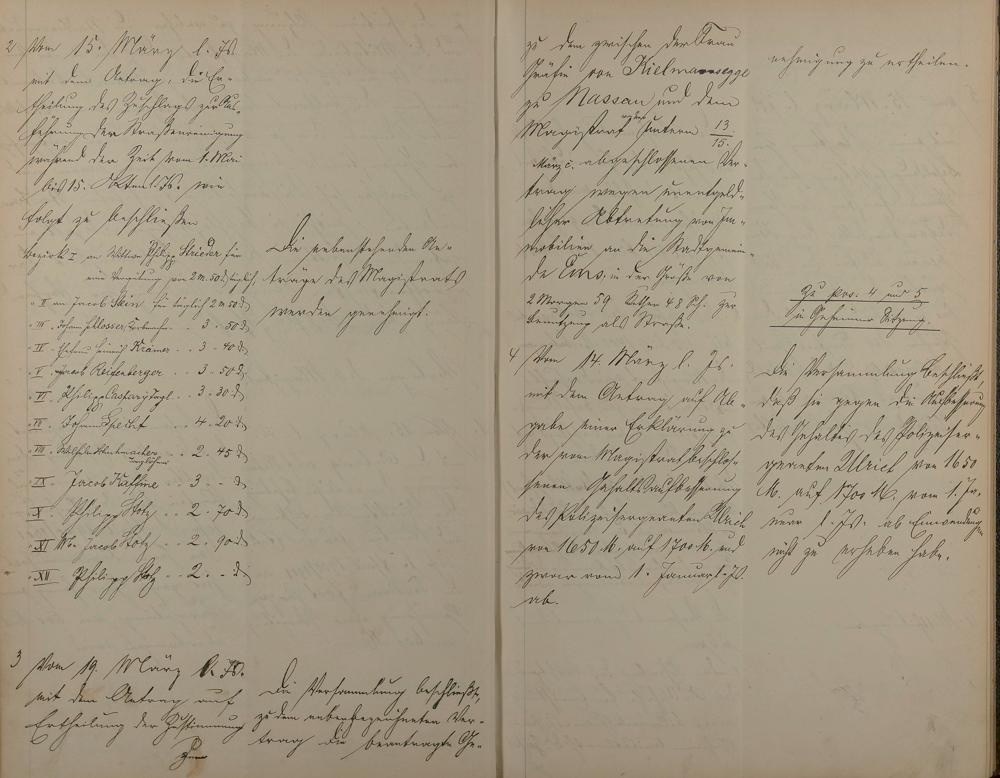 2 Vom 15. März l. Js.
mit dem Antrag, die Er-
theilung des Zuschlags zur Aus-
führung der Straßenreinigung
während der Zeit vom 1. Mai
bis 15. Okten l. Js. wie
folgt zu beschließen
Bezirk I an Wittwe Philipp Strieder für
eine Vergütung von 2 M. 50 d täglich,
" II an Jacob Stein für täglich 2 M 50 d
" III " Johann Schlosser " 3 . 50 d
" IV " Ehefrau Heinrich Krämer . . 3 - 40 d
" V " Jacob Reifenberger . . 3 - 50 d
" VI " Philipp Caspary Tagl. . 3 - 30 d
" VII " Johann Specht . . 4 - 20 d
" VIII " Wilhelm Hutmacher . . 2 . 45 d
Taglöhner
" IX " Jacob . . 3 - - d
" X " Philipp Stotz . . 2 - 70 d
" XI " W. Jacob Stotz . . 2 . 90 d
" XII " Philipp Stotz . . 2 . - d
Die nebenstehenden An-
träge des Magistrats
werden genehmigt.
3 Vom 19. März l. Js.
mit dem Antrag auf
Ertheilung der Zustimmung
zum
Die Versammlung beschließt,
zu dem nebenbezeichneten Ver-
trag die beantragte Ge-
zu dem zwischen der Frau
Gräfin von Kielmannsegge
zu Nassau und dem
Magistrat unterm 13/15.
März c. abgeschlossenen Ver-
trag wegen unentgeld-
licher Abtretung von Im-
mobilien an die Stadtgemein-
de Ems, in der Größe von
2 Morgen 59 Ruthen 48 Sch. zur
Benutzung als Straße.
nehmigung zu ertheilen.
Zu pos. 4 und 5
in Geheimer Sitzung.
4 Vom 14. März l. Js.
mit dem Antrag auf Ab-
gabe einer Erklärung zu
der vom Magistrat beschlos-
senen Gehaltsaufbesserung
des Polizeisergeanten Ulrich
von 1650 M. auf 1700 M. und
zwar vom 1. Januar l. Js.
ab.
Die Versammlung beschließt,
daß sie gegen die Aufbesserung
des Gehaltes des Polizeiser-
geanten Ulrich von 1650
M. auf 1700 M. vom 1. Ja-
nuar l. Js. ab Einwendungen
nicht zu erheben habe.